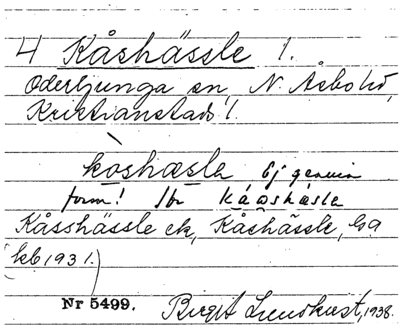 4 Kåshässle 1.
Oderljunga sn, N. Åsbo hd,
Kristianstads l.
kòshæsla Ej genuin
form! Jfr kåashæsla
Kåsshässle ek, Kåshässle, ga
(kb 1931.)
Nr 5499. Birgit Lundkvist, 1938.